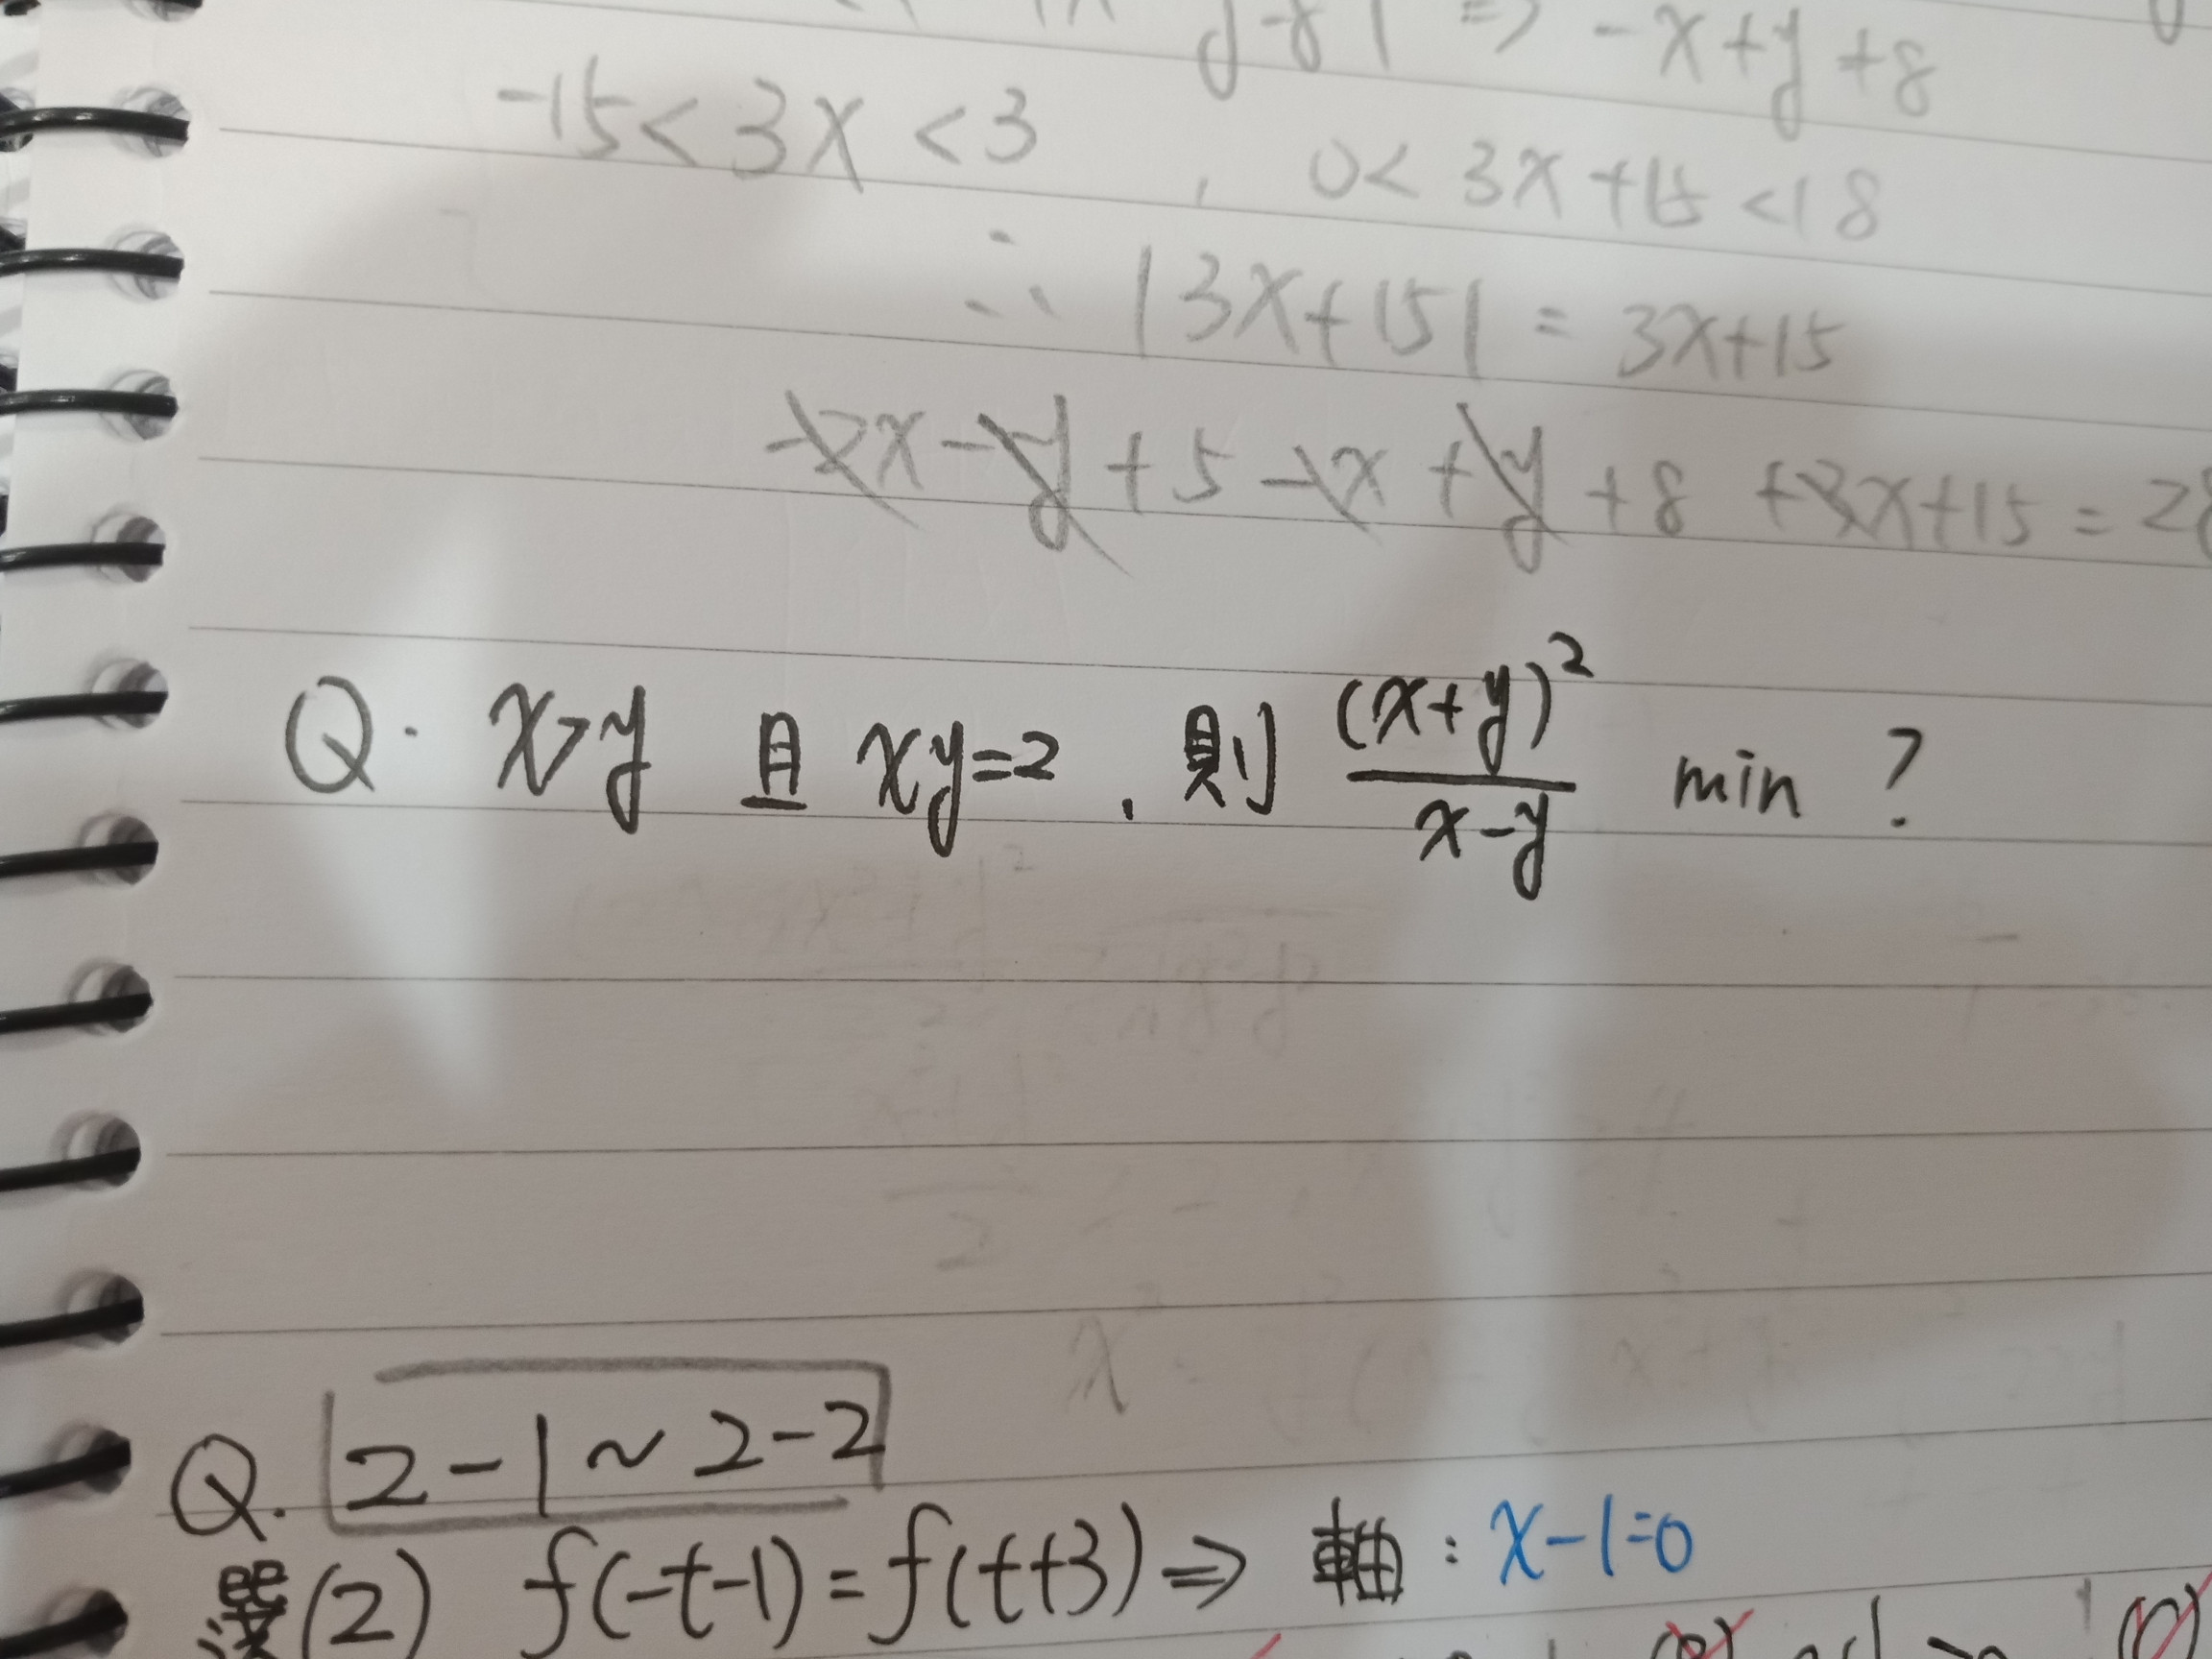 ⇒ -x+y+8
-15<3x<3 , 0<3x+15<18
∴ |3x+15| = 3x+15
-2x-y+5-x+y+8+3x+15=28
Q. x>y 且 xy=2, 則 (x+y)²/(x-y) min ?
Q. 2-1~2-2
選(2) f(-t-1)=f(t+3)⇒ 軸: x-1=0